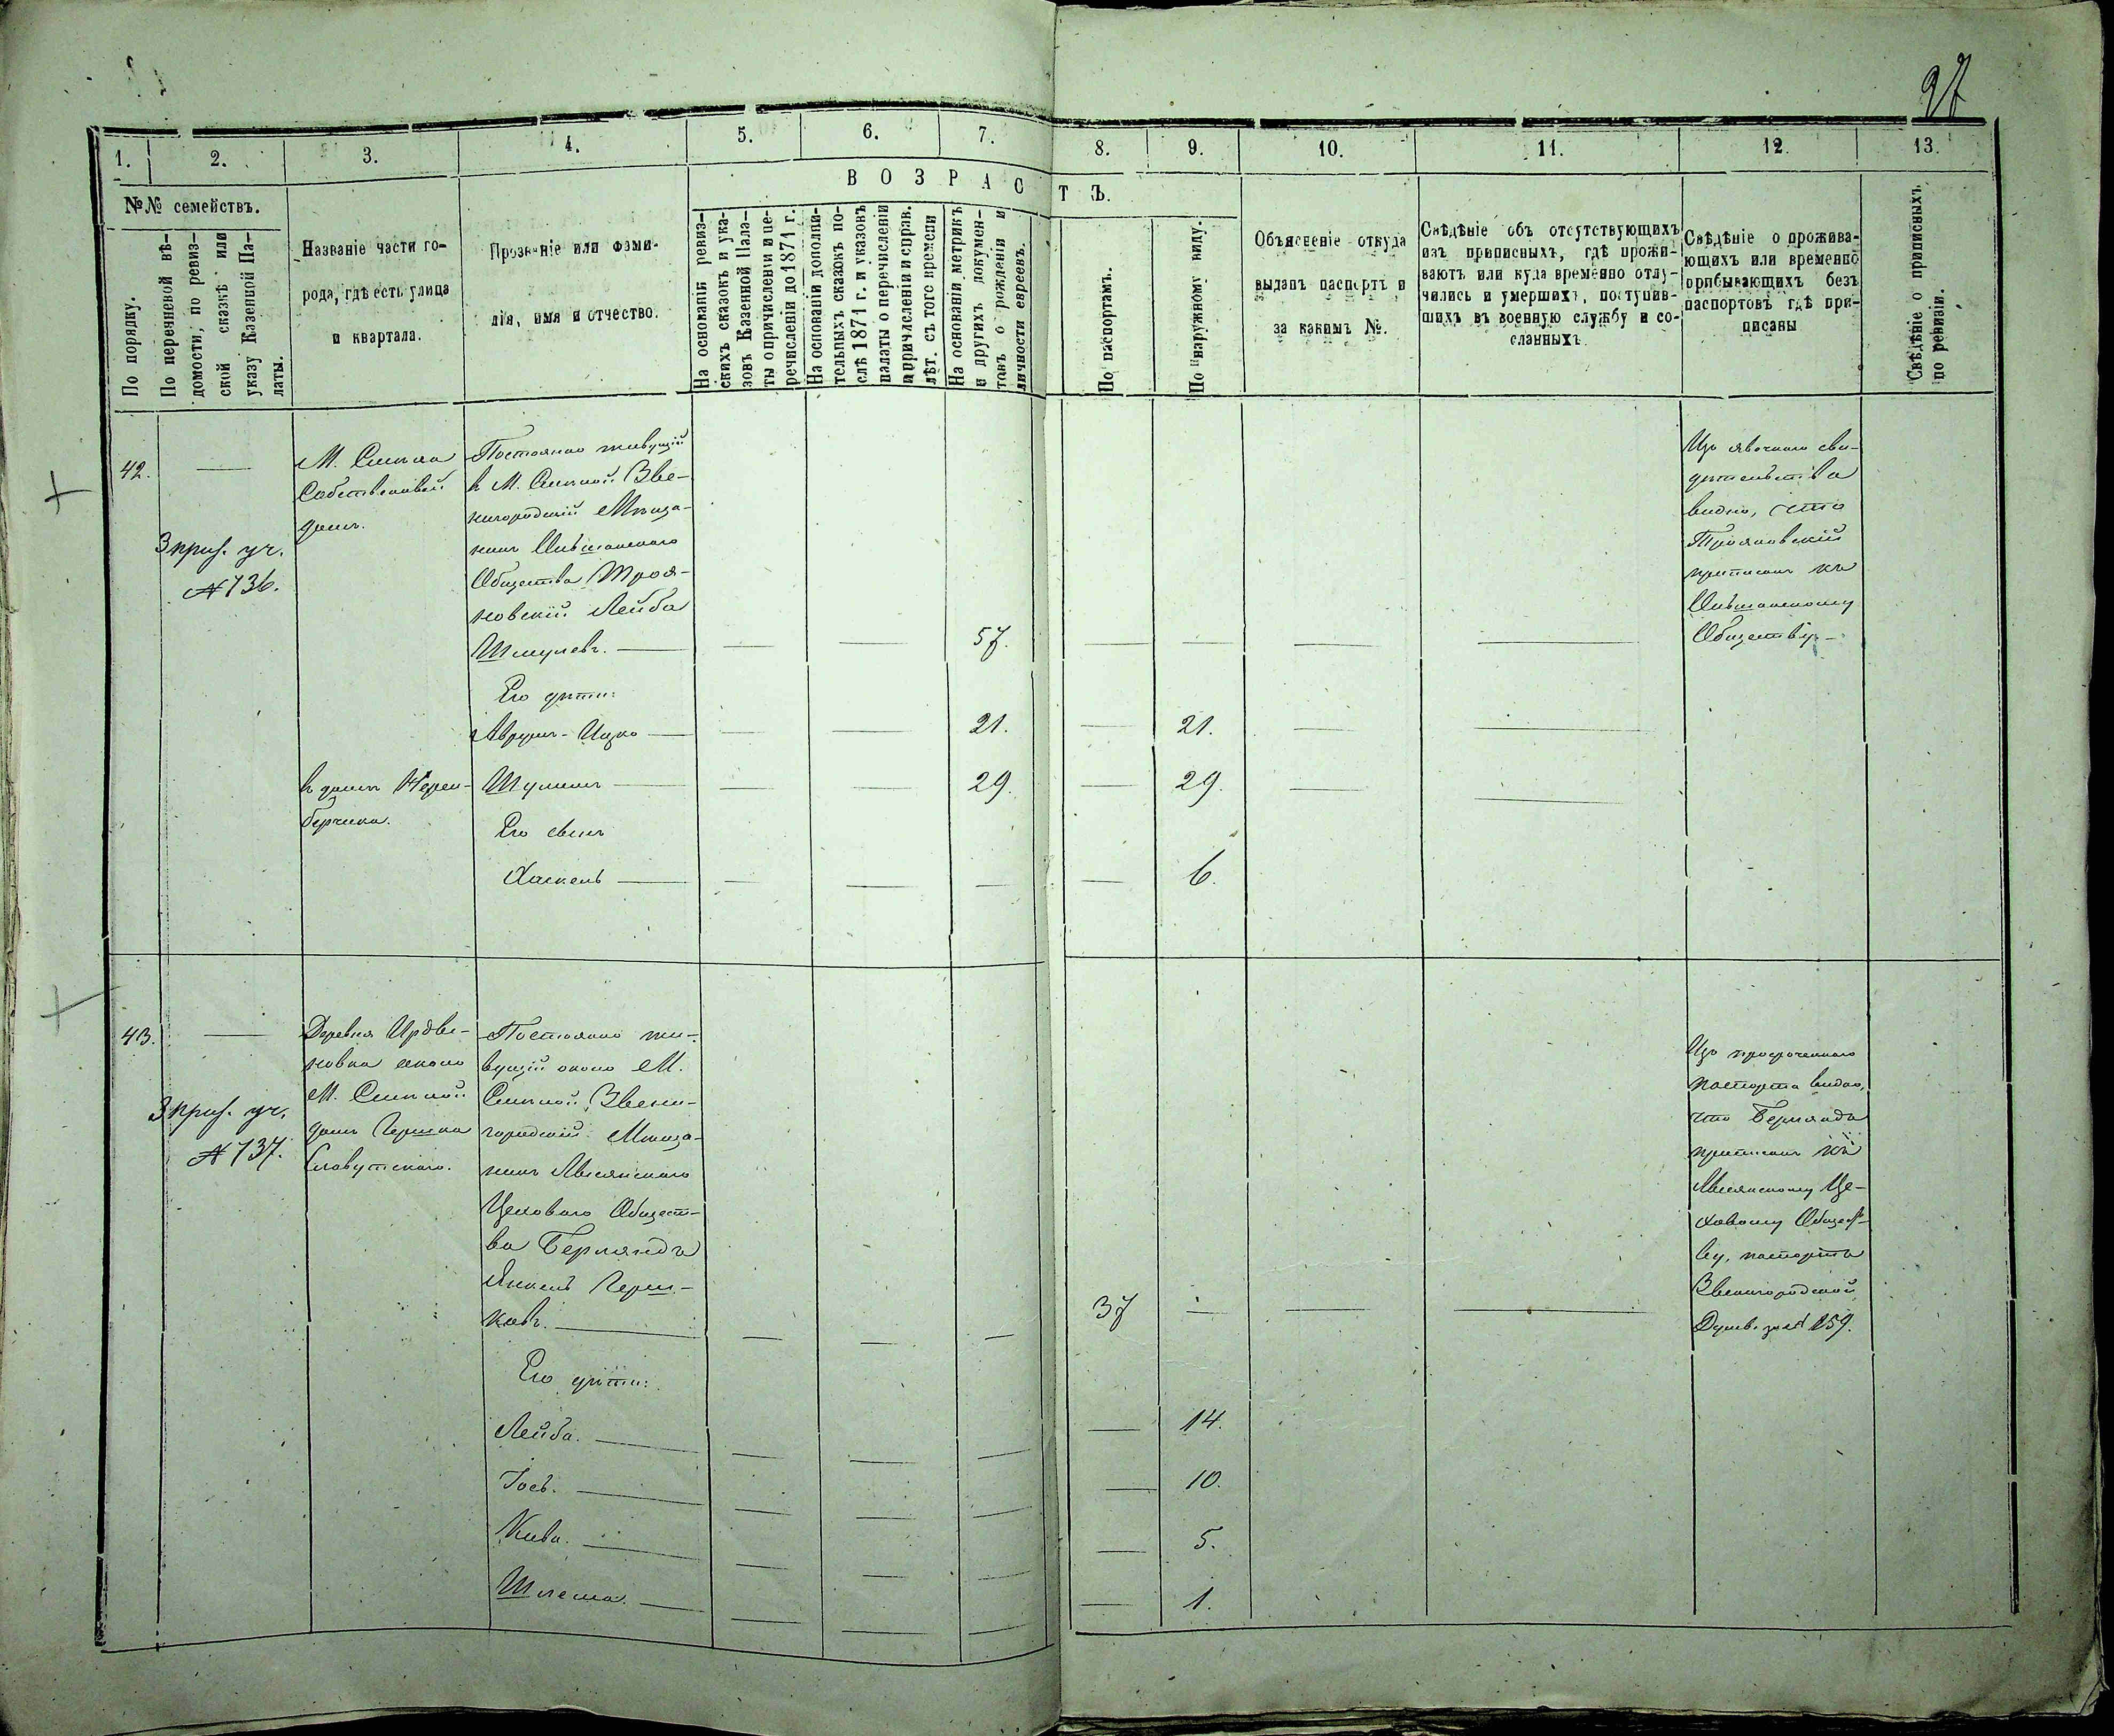 97
1. 2. 3. 4. 5. 6. 7. 8. 9. 10. 11. 12. 13.
ВОЗРАСТЪ.
№№ семействъ.
По порядку.
По перечневой вѣ-
домости, по ревиз-
ской сказкѣ или
указу Казенной Па-
латы.
Названіе части го-
рода, гдѣ есть улица
и квартала.
Прозваніе или фами-
лія, имя и отчество.
На основаніи ревиз-
скихъ сказокъ и ука-
зовъ Казенной Пала-
ты о причисленіи и пе-
речисленіи до 1871 г.
На основаніи дополни-
тельныхъ сказокъ по-
слѣ 1871 г. и указовъ
палаты о перечисленіи
и причисленіи и справ.
лѣт. съ того времени
На основаніи метрикъ
и другихъ докумен-
товъ о рожденіи и
личности евреевъ.
По паспортамъ.
По наружному виду.
Объясненіе откуда
выданъ паспортъ и
за какимъ №.
Свѣдѣніе объ отсутствующихъ
изъ приписныхъ, гдѣ прожи-
ваютъ или куда временно отлу-
чились и умершихъ, поступив-
шихъ въ военную службу и со-
сланныхъ
Свѣдѣніе о прожива-
ющихъ или временно
прибывающихъ безъ
паспортовъ гдѣ при-
писаны
Свѣдѣніе о приписныхъ
по ревизіи.
42.
3 приз. уч.
№ 136.
М. Смѣла
Собственный
домъ.
Постоянно живущій
в М. Смѣлой Зве-
нигородскій Мѣща-
нинъ Ольшанского
Общества Троя-
новскій Лейба
Шмулевъ. 57.
Его дѣти:
Аврумъ-Ицко 21. 21.
в домѣ
Шулимъ 29. 29.
Его сынъ
Хаскель 6.
Изъ явочного сви-
дѣтельства
видно, что
Трояновскій
приписанъ къ
Ольшанскому
Обществу
43.
3 приз. уч.
№ 137.
Деревня
около
М. Смѣлой
домъ Гершка
Славутского.
Постоянно жи-
вущій около М.
Смѣлой Звени-
городскій Мѣща-
нинъ Лысянского
Цехового Общест-
ва Берляндъ
Янкель Герш-
ковъ. 37
Его дѣти:
Лейба. 14.
Іось. 10.
Кива. 5.
Шлема. 1.
Изъ просроченного
паспорта видно,
что Берляндъ
приписанъ къ
Лысянскому Це-
ховому Общест-
ву, паспортъ
Звенигородской
Думы за № 159.